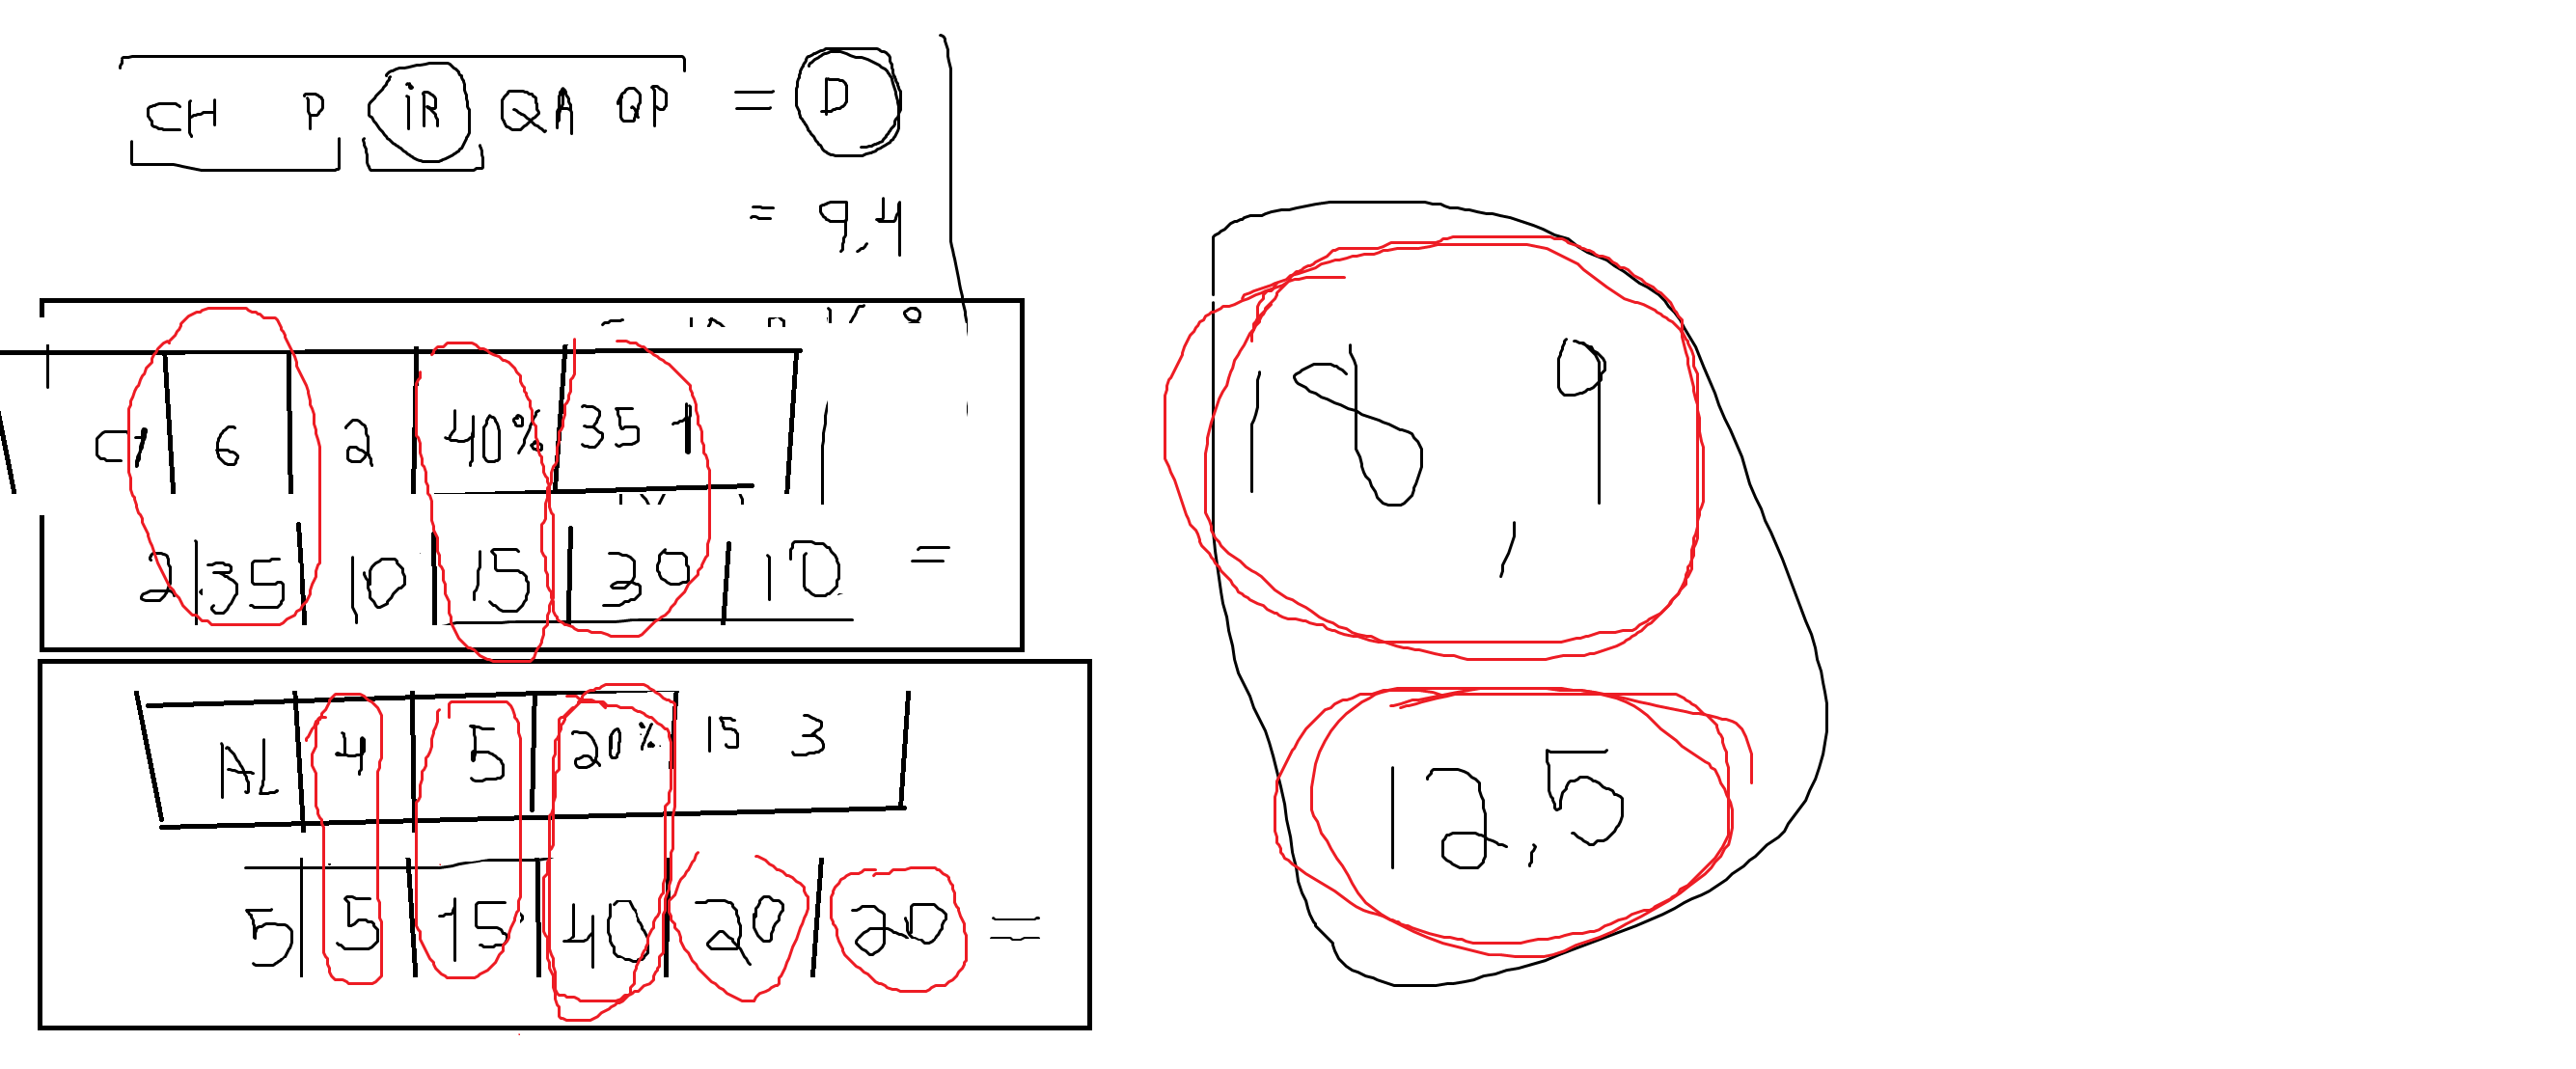 CH P iR QA QP = D
= 9,4
6 2 40% 35 1
2 35 10 15 30 10 =
AL 4 5 20% 15 3
5 5 15 40 20 20 =
18,9
12,5